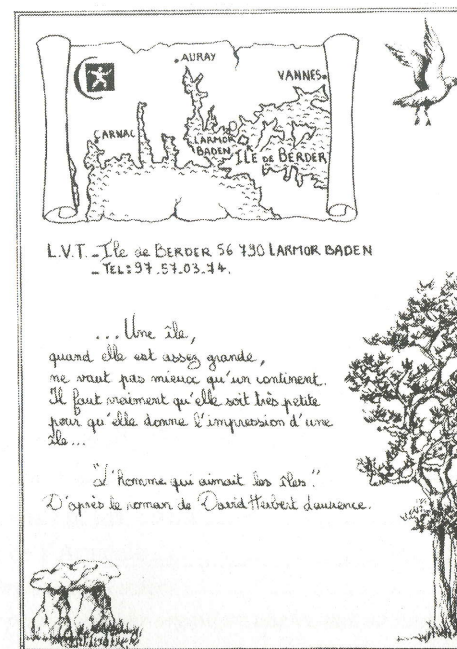 AURAY
VANNES
CARNAC
LARMOR
BADEN
ILE DE BERDER
L.V.T. - Ile de BERDER 56 790 LARMOR BADEN
- TEL: 97.57.03.74.
...Une île,
quand elle est assez grande,
ne vaut pas mieux qu'un continent.
Il faut vraiment qu'elle soit très petite
pour qu'elle donne l'impression d'une
île...
"L'homme qui aimait les îles."
D'après le roman de David Herbert Lawrence.